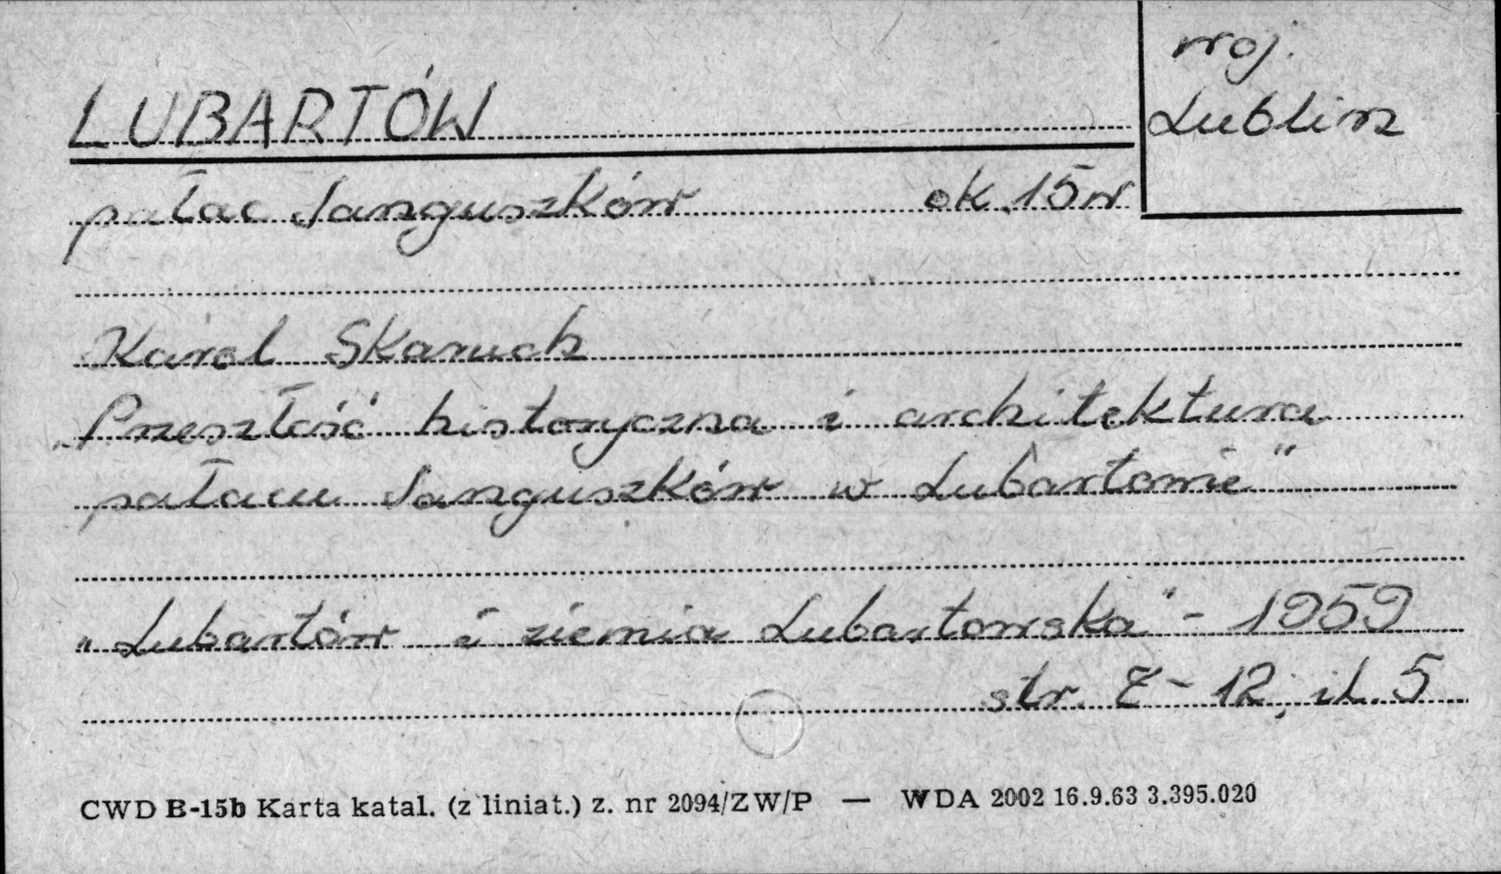 woj.
Lublin
LUBARTÓW
pałac Sanguszków ok. 15 w
Karol Skaruch
„Przeszłość historyczna i architektura
pałacu Sanguszków w Lubartowie"
„Lubartów i ziemia Lubartowska" - 1959
str. 7 - 12, il. 5
CWD B-15b Karta katal. (z liniat.) z. nr 2094/ZW/P — WDA 2002 16.9.63 3.395.020